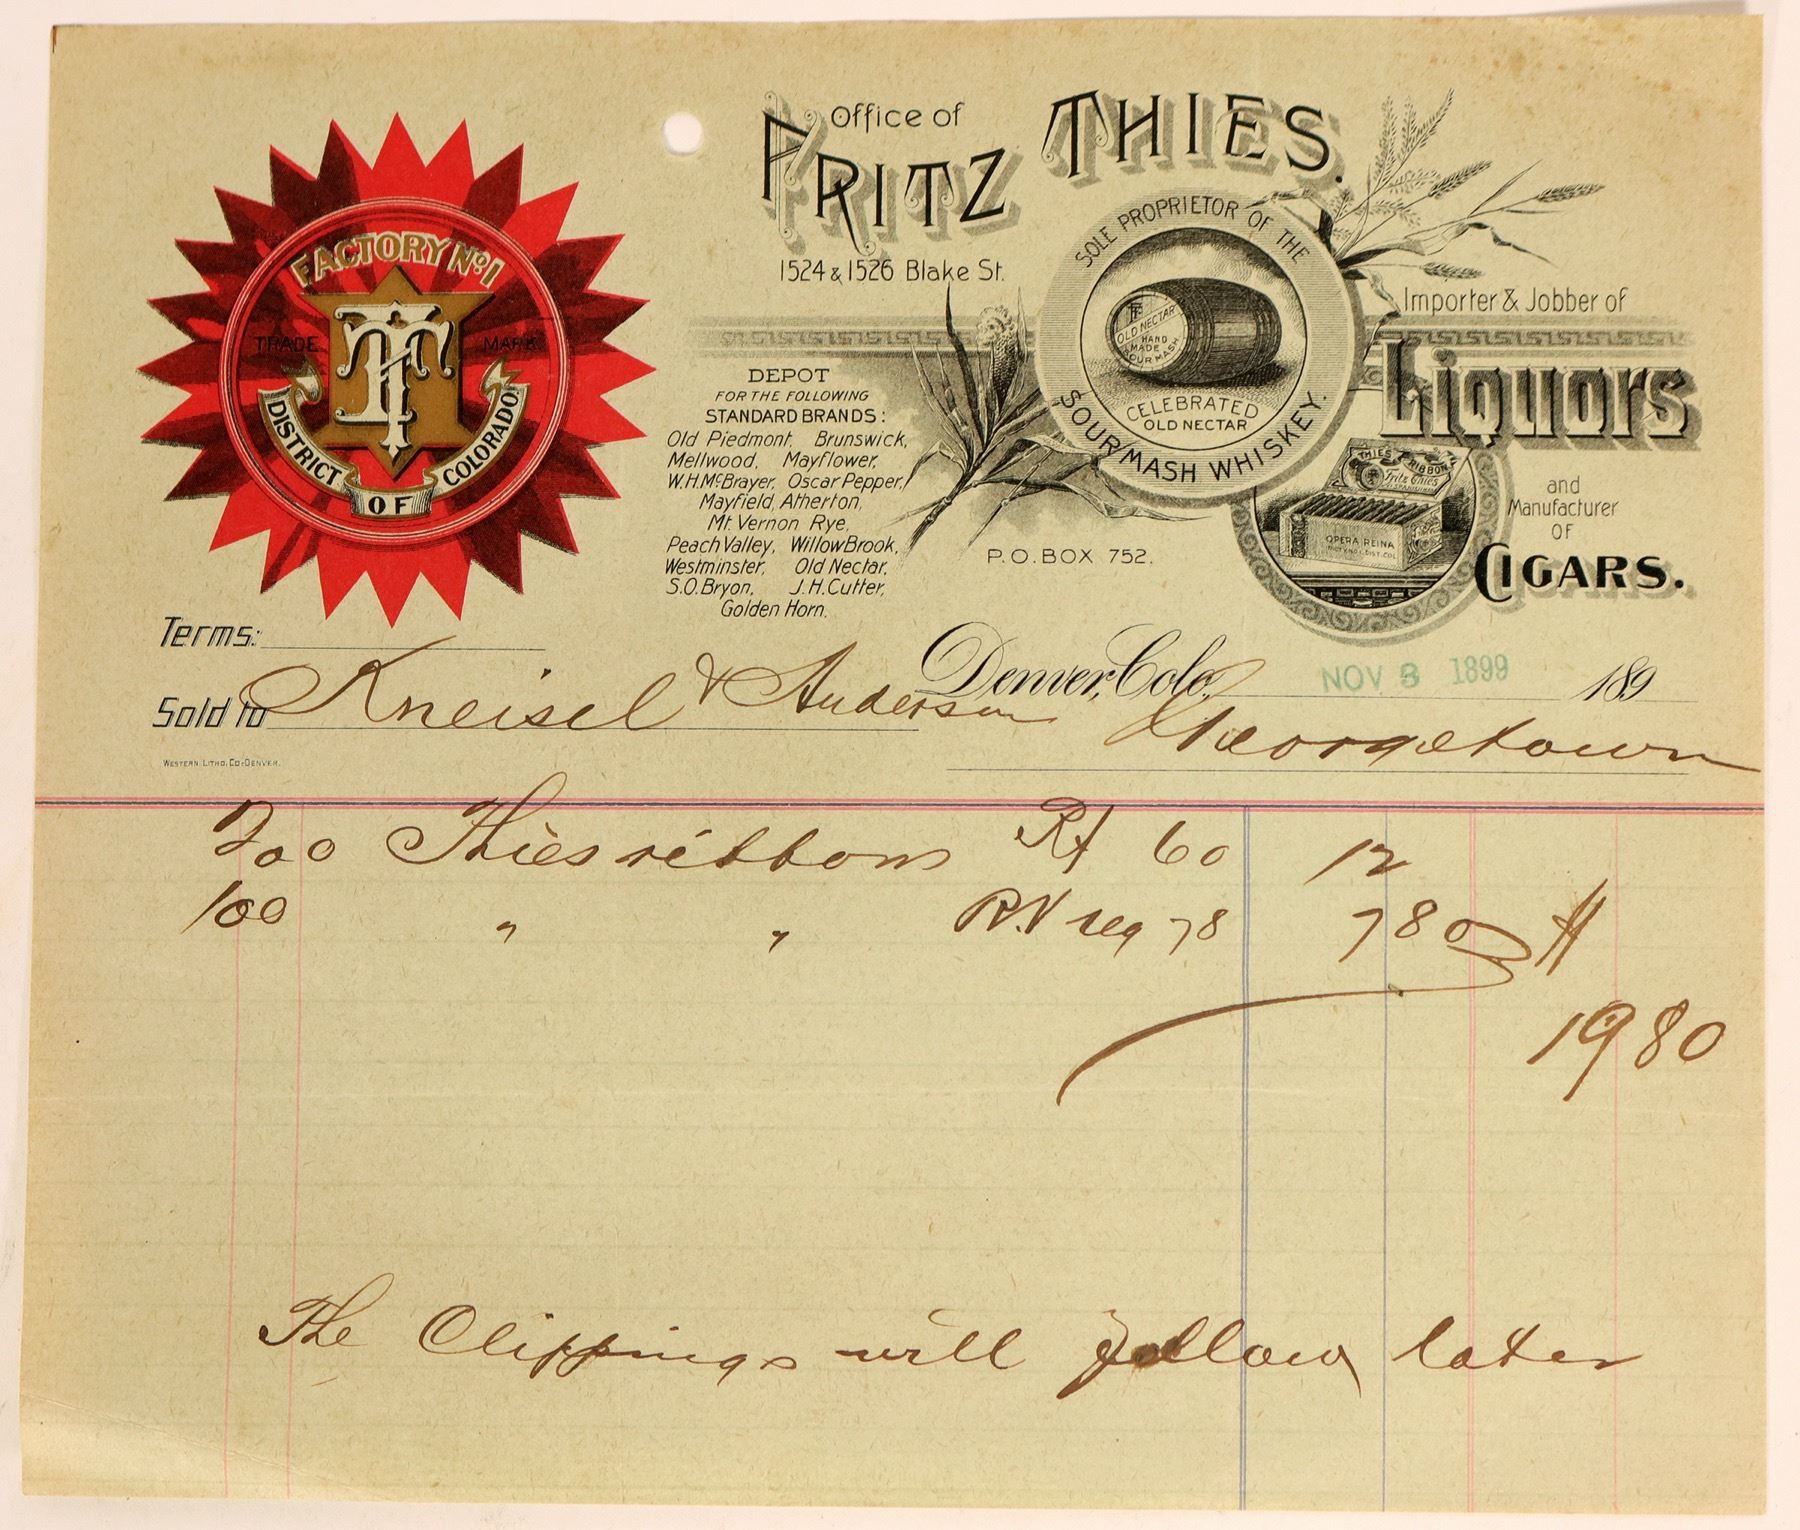 Office of
FRITZ THIES.
1524 & 1526 Blake St.
FACTORY No. 1
TRADE MARK
FT
DISTRICT OF COLORADO
SOLE PROPRIETOR OF THE
FT
OLD NECTAR
HAND
MADE
SOUR MASH
CELEBRATED
OLD NECTAR
SOUR MASH WHISKEY.
Importer & Jobber of
Liquors
and
Manufacturer
OF
CIGARS.
THIES RIBBON
Fritz Thies
OPERA REINA
FACT'Y NO.1, DIST. COL.
DEPOT
FOR THE FOLLOWING
STANDARD BRANDS:
Old Piedmont, Brunswick,
Mellwood, Mayflower,
W.H.McBrayer, Oscar Pepper,
Mayfield, Atherton,
Mt. Vernon Rye,
Peach Valley, Willow Brook,
Westminster, Old Nectar,
S.O.Bryon, J.H.Cutter,
Golden Horn.
P.O. BOX 752.
Terms:
Denver, Colo. NOV 8 1899 189
Sold to Kneisel & Anderson
Georgetown
WESTERN LITHO. CO. DENVER.
200 Thies ribbons Rf 60 12
100 " " R.V reg 78 7 80
19 80
The Clippings will follow later